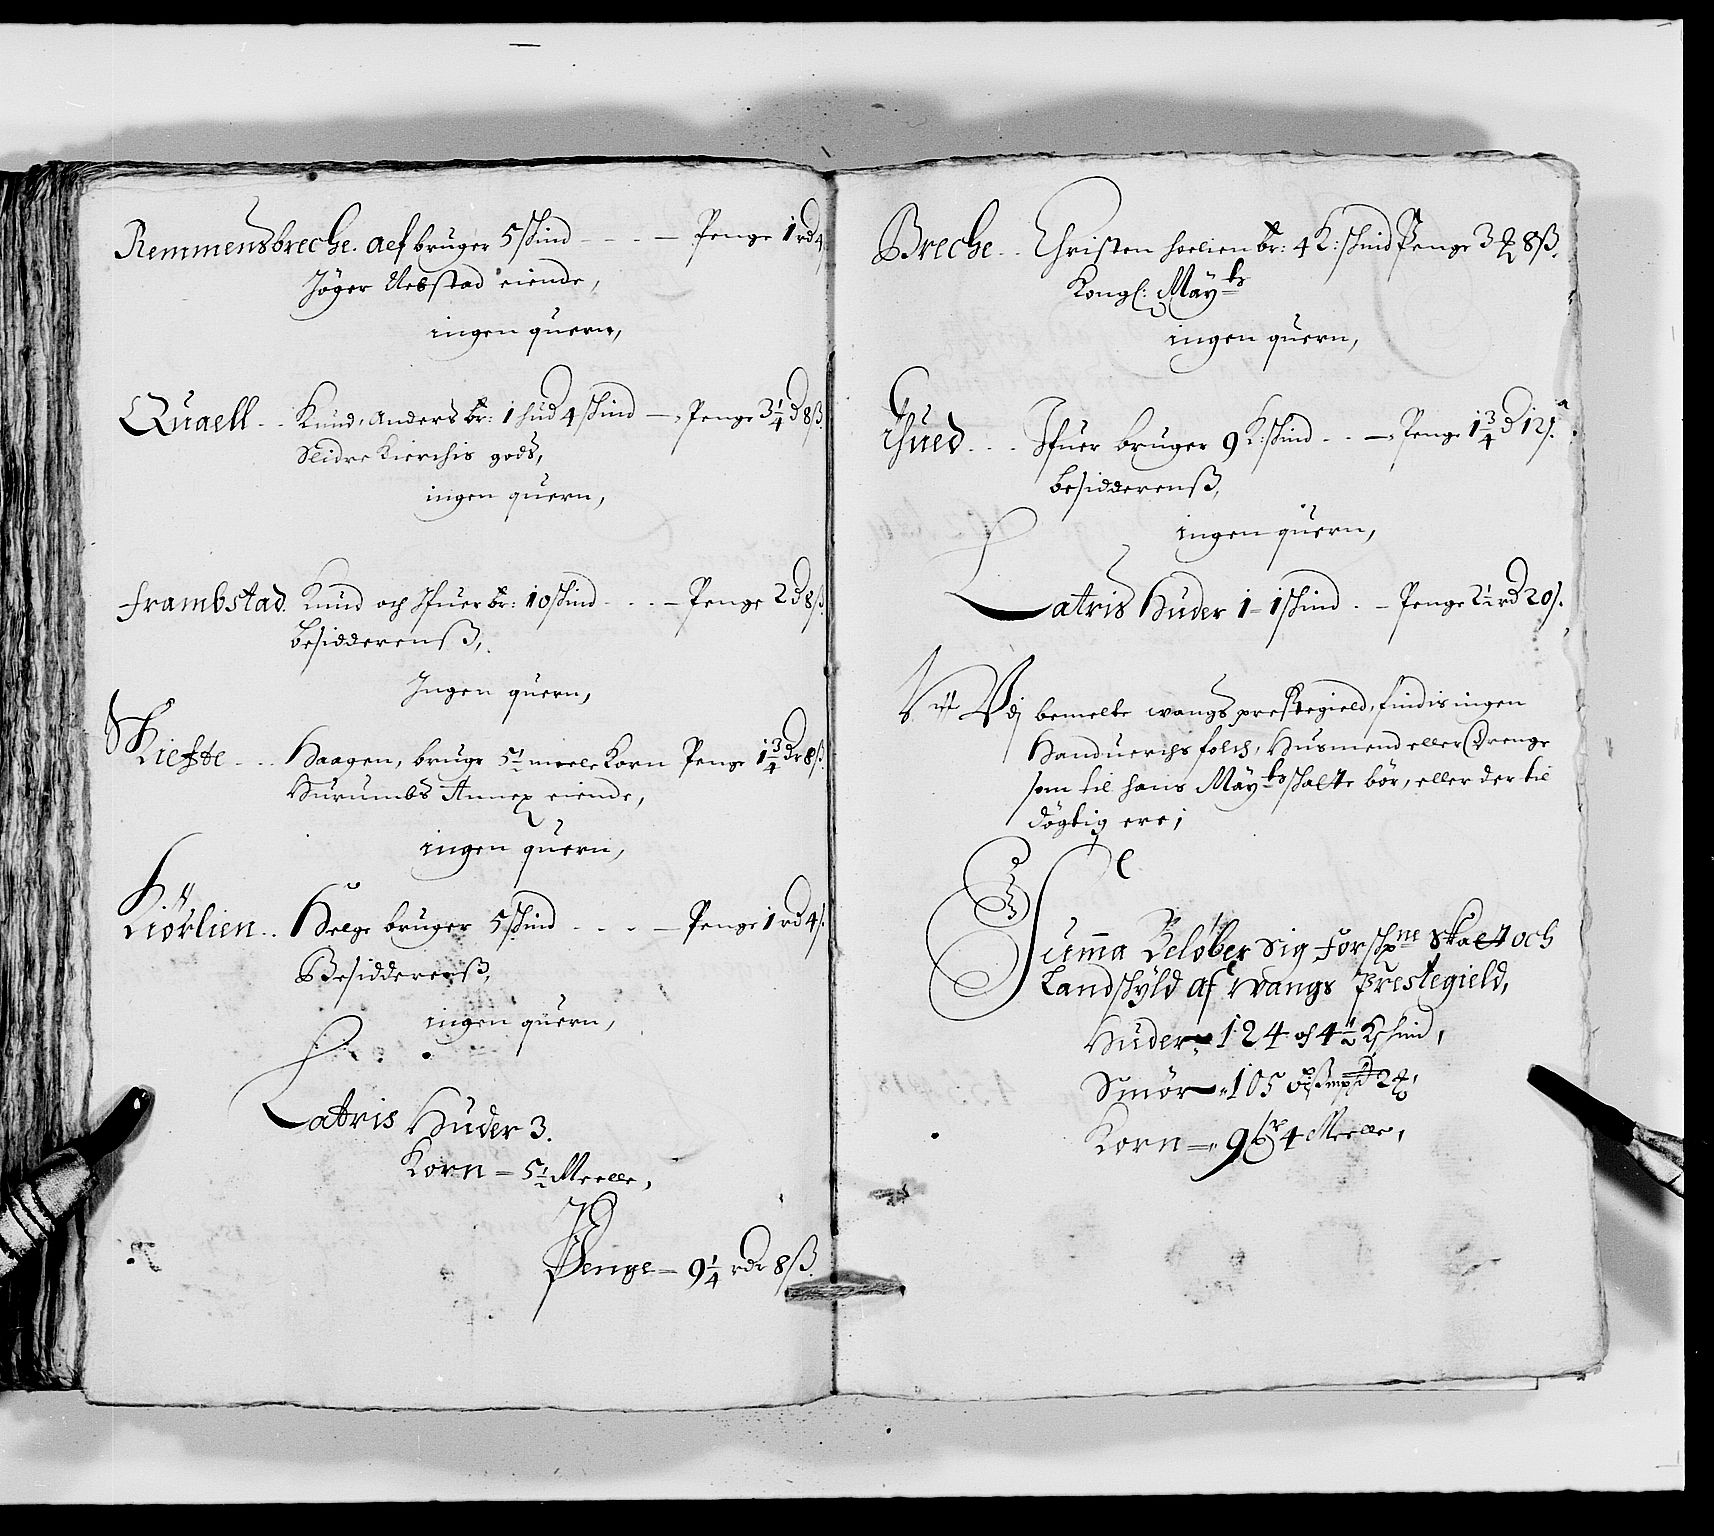 Remmensbreche. aef bruger 5 skind - - - - Penge 1 rd 4
Jöger Uebstad eiende,
ingen quern,
Quaell - - Knud, Anders br: 1 hud 4 skind - Penge 3 1/4 d 8 ß.
Slidre Kierchis gods,
ingen quern,
Frambstad. Knud och Ifuer br: 10 skind - - - - Penge 2 d 8 ß.
besidderenß,
Ingen quern,
Haagen, bruger 5 1/2 meele Korn Penge 1 3/4 dr 8 ß.
Hurumbs Annex eiende,
ingen quern,
Kiörlien . . Helge bruger 5 skind - - - - Penge 1 rd 4 s.
Besidderenß,
ingen quern,
Latris Huder 3.
Korn = 5 1/2 Meelle,
Penge = 9 1/4 rdr 8 ß.
Breche . . Christen br: 4 K: skind Penge 3 8 ß.
Kongl: Mayts
ingen quern,
Hued . . . Ifuer bruger 9 K: skind - - - Penge 1 3/4 d 12 s.
besidderenß,
ingen quern,
Latris Huder 1 - 1 skind . - Penge 2 1/2 rd 20 s.
Udj bemelte wangs prestegield, findis ingen
Handuerchs folch, Husmend eller Drenge
som til hans Mayts skatte bör, eller der til
dögtig ere;
Summa Belöber sig forschne skatt och
Landskyld af wangs Prestegield,
Huder = 124 og 4 1/2 K skind,
Smör = 105 2
Korn = 9 4 Meelle,